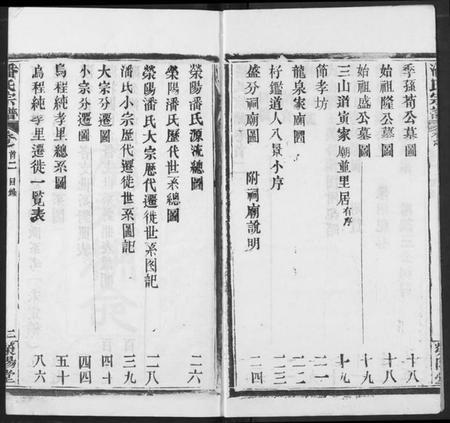 潘氏宗譜
季孫荀公墓圖 十八
始祖隆公墓圖 十八
始祖盛公墓圖 十九
三山游寅家廟重里居有序 十九
節孝坊 二一
龍泉家廟圖 二二
杍鑑道人八景小序
盛分祠廟圖 附祠廟說明 二四
滎陽潘氏源流總圖 二六
滎陽潘氏大宗歷代遷徙世系图記 二八
潘氏小宗歷代遷徙世系圖記 三九
大宗分遷圖 四十
小宗分遷圖 四四
烏程純孝里總系圖 五十
烏程純孝里遷徙一覽表 八六
潘氏宗譜 卷首二 目錄 二 滎陽堂